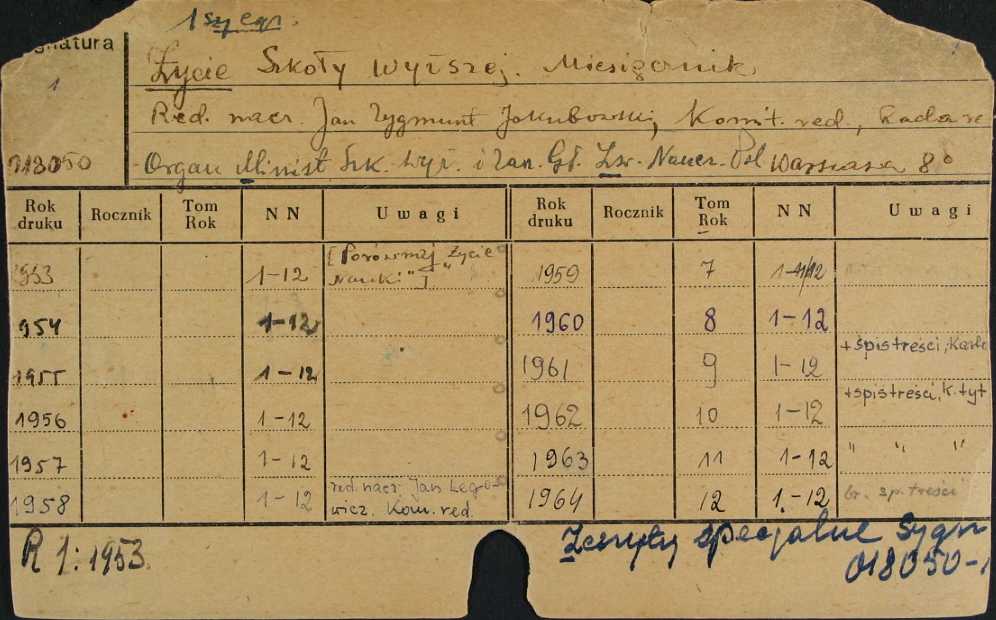 1 syegn.
gnatura
1
Życie Szkoły Wyższej. Miesięcznik
Red. nacz. Jan Zygmunt Jakubowski, Komit. red., Rada re
Organ Minist Szk. Wyż. i Zan. Gł. Zw. Naucz. Pol Warszawa 8°
313050
Rok druku Rocznik Tom Rok NN Uwagi Rok druku Rocznik Tom Rok NN Uwagi
1953 1-12 [Porównaj "Życie Nauki"] 1959 7 1-12
954 1-12 1960 8 1-12
1955 1-12 1961 9 1-12 + spis treści, Karta
1956 1-12 1962 10 1-12 + spis treści, k. tyt
1957 1-12 1963 11 1-12 " " "
1958 1-12 red. nacz. Jan Legowicz. Kom. red. 1964 12 1-12 br. sp. treści
R 1: 1953.
Zeszyty specjalne Sygn
018050-1